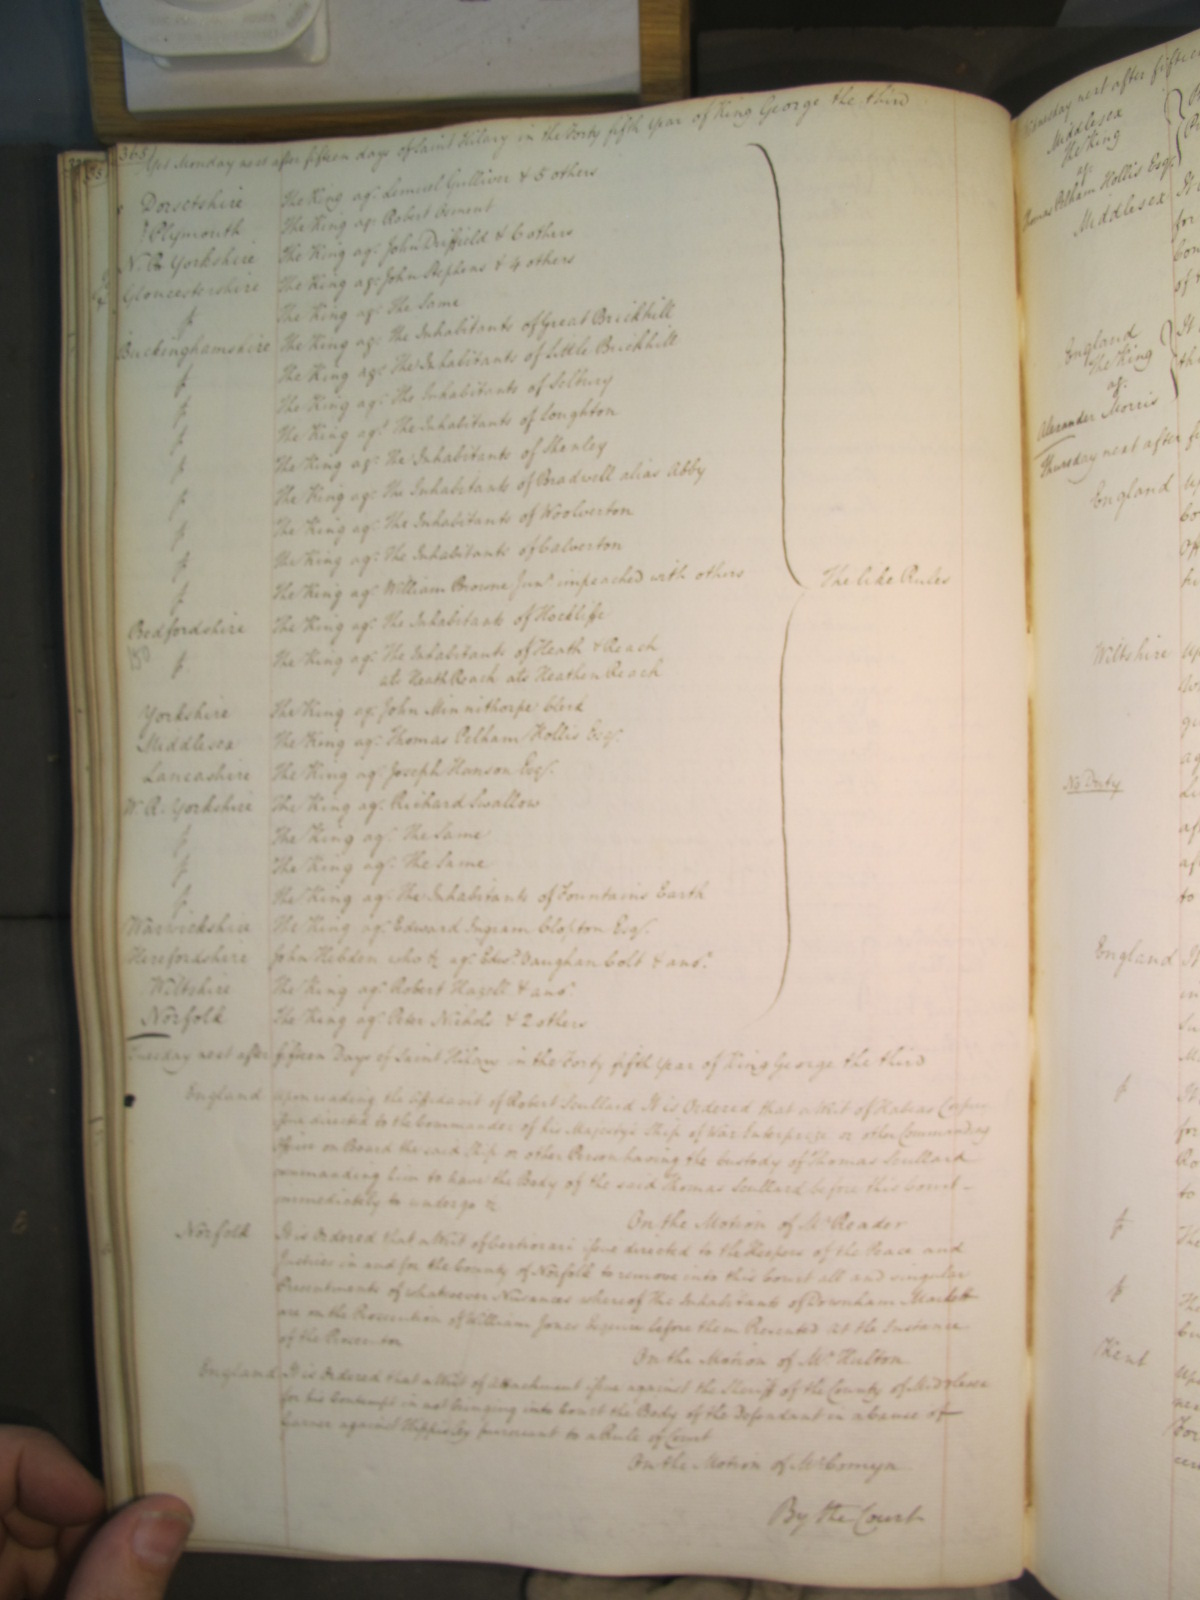 365
Yet Monday next after fifteen days of Saint Hilary in the Forty fifth Year of King George the third
Dorsetshire The King agt. Lemuel Gulliver & 5 others
Plymouth The King agt. Robert Osment
N. R. Yorkshire The King agt. John Driffield & 6 others
Gloucestershire The King agt. John Stephens & 4 others
The King agt. The Same
Buckinghamshire The King agt. The Inhabitants of Great Brickhill
The King agt. The Inhabitants of Little Brickhill
The King agt. The Inhabitants of Solbury
The King agt. The Inhabitants of Loughton
The King agt. The Inhabitants of Shenley
The King agt. The Inhabitants of Bradwell alias Abby
The King agt. The Inhabitants of Woolverton
The King agt. The Inhabitants of Calverton
The King agt. William Browne Junr. impeached with others
The like Rules
Bedfordshire The King agt. The Inhabitants of Hocklife
The King agt. The Inhabitants of Heath & Reach
als Heath Reach als Heathen Reach
Yorkshire The King agt. John Minnithorpe Clerk
Middlesex The King agt. Thomas Pelham Hollis Esqr.
Lancashire The King agt. Joseph Hanson Esqr.
W. R. Yorkshire The King agt. Richard Swallow
The King agt. The Same
The King agt. The Same
The King agt. The Inhabitants of Fountains Earth
Warwickshire The King agt. Edward Ingram Clopton Esqr.
Herefordshire John Hebden who &c agt. Edwd. Vaughan Colt & anor.
Wiltshire The King agt. Robert Hazell & anor.
Norfolk The King agt. Peter Nichols & 2 others
Tuesday next after fifteen Days of Saint Hilary in the Forty fifth Year of King George the third
England Upon reading the Affidavit of Robert Scullard It is Ordered that a Writ of Habeas Corpus
issue directed to the Commander of his Majesty's Ship of War Enterprize or other Commanding
Officer on Board the said Ship or other Person having the Custody of Thomas Scullard
commanding him to have the Body of the said Thomas Scullard before this Court
immediately to undergo &c
On the Motion of Mr. Reader
Norfolk It is Ordered that a Writ of Certiorari issue directed to the Keepers of the Peace and
Justices in and for the County of Norfolk to remove into this Court all and singular
Presentments of whatsoever Nusances whereof The Inhabitants of Downham Markett
are on the Prosecution of William Jones before them Presented at the Instance
of the Prosecutor
On the Motion of Mr. Hulton
England It is Ordered that a Writ of Attachment issue against the Sheriff of the County of Middlesex
for his Contempt in not bringing into Court the Body of the Defendant in a Cause of
Garner against Hippisley pursuant to a Rule of Court
On the Motion of Mr. Comyn
By the Court
Wednesday next after fifteen
Middlesex
The King
agt.
Thomas Pelham Hollis Esqr.
Middlesex
England
The King
agt.
Alexander Morris
Thursday next after
England
Wiltshire
No Duty
England
Kent